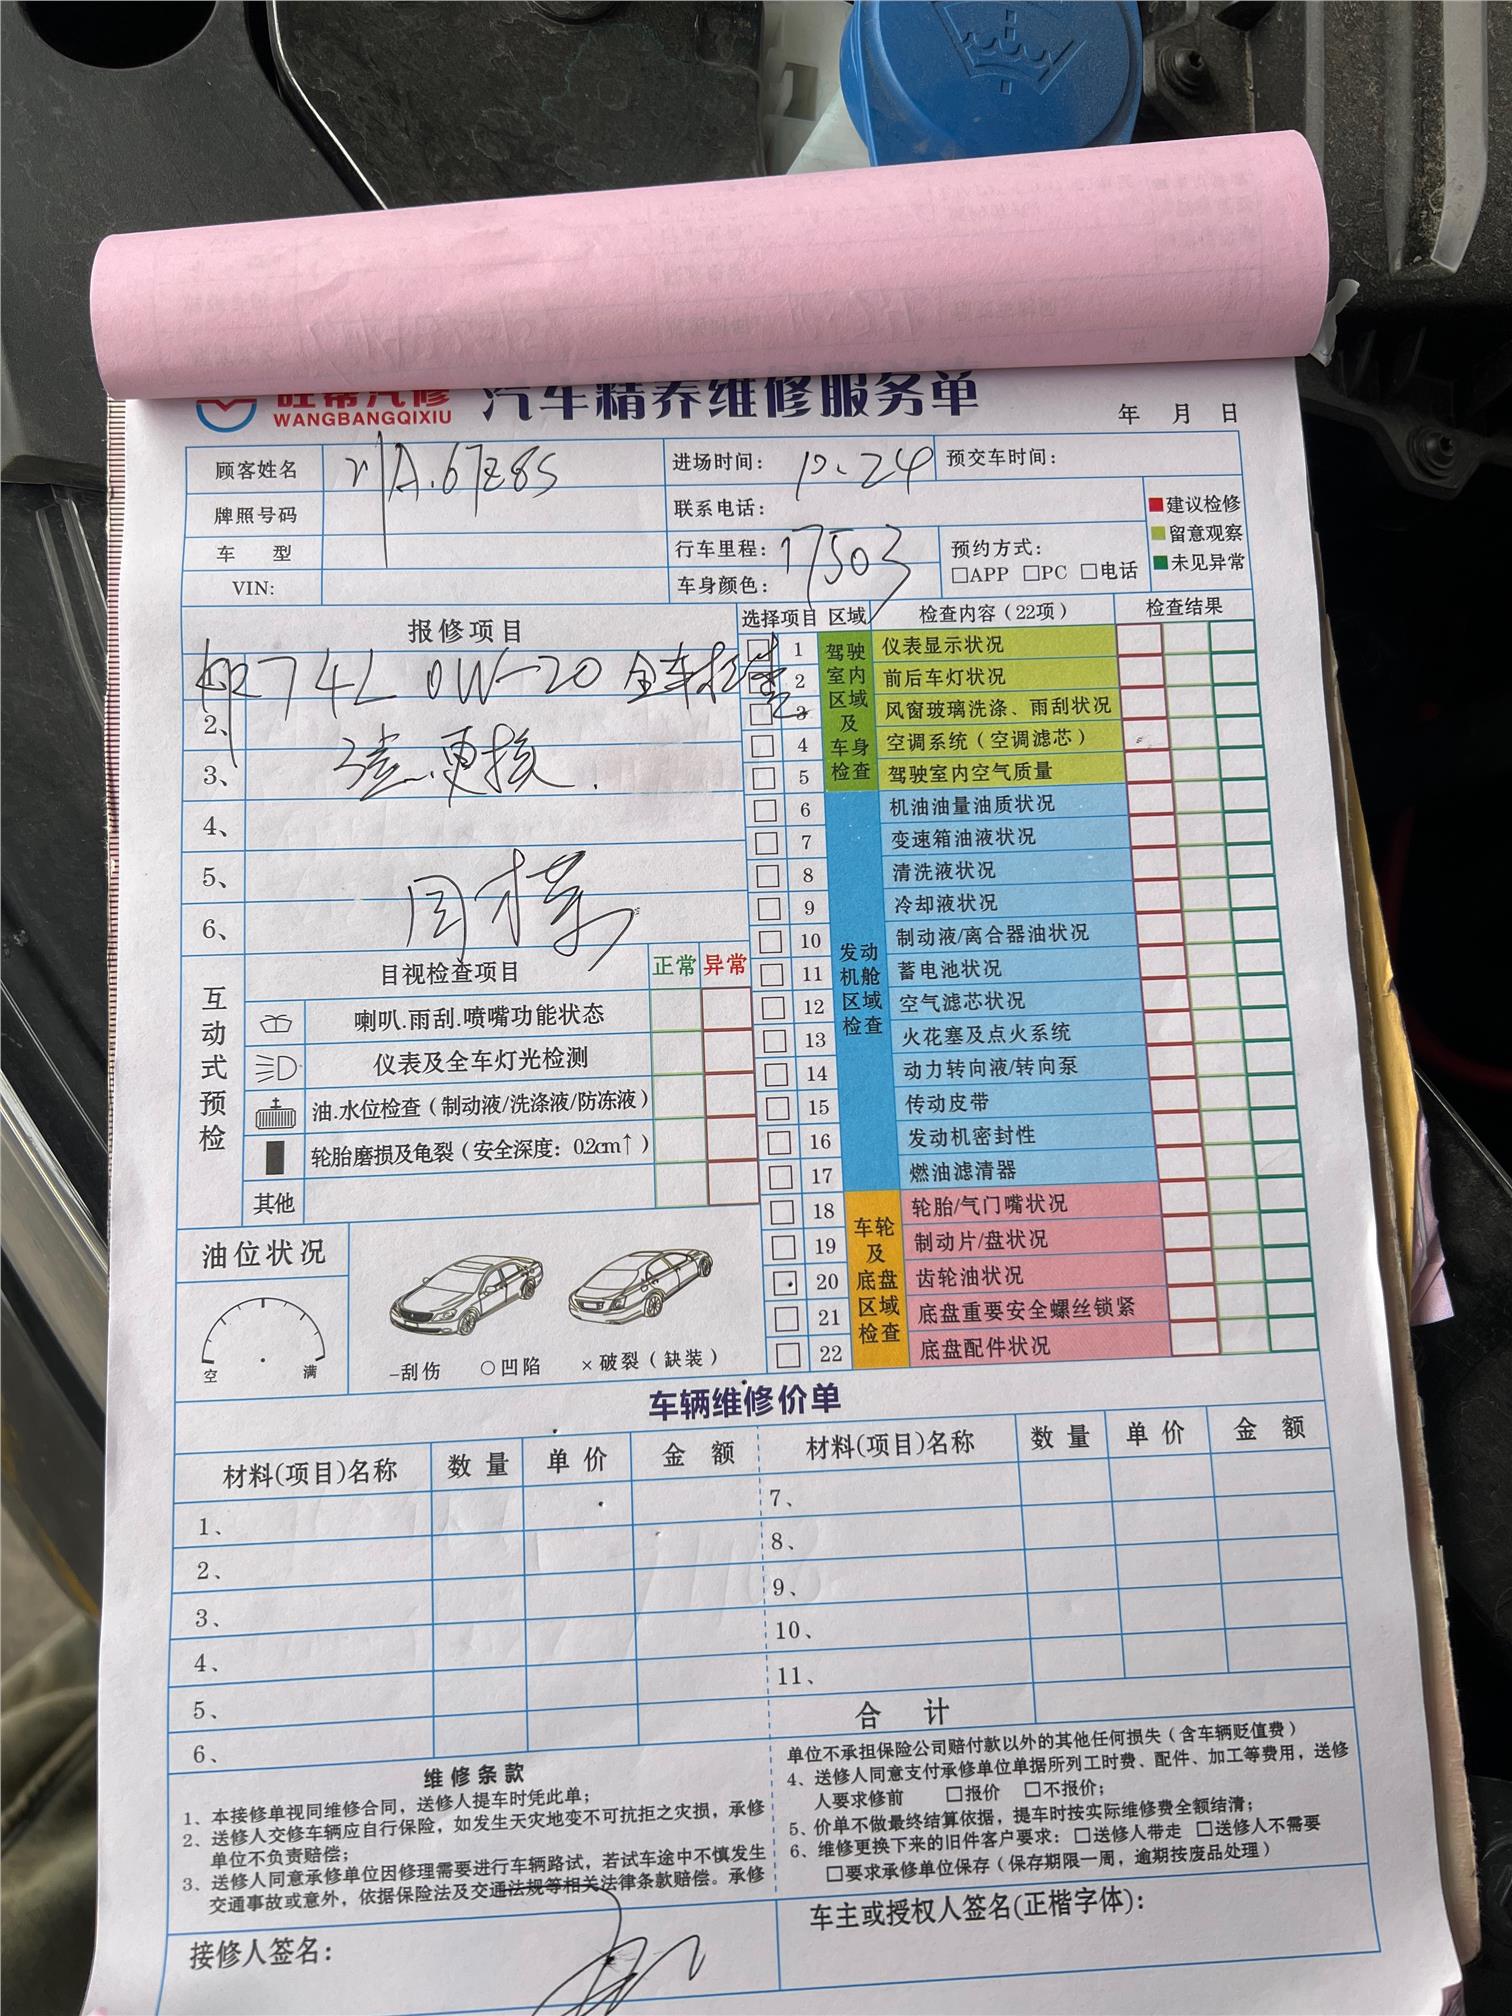 WANGBANGQIXIU
汽车精养维修服务单
年 月 日
顾客姓名
A.67Z8S
进场时间：
10.24
预交车时间：
牌照号码
联系电话：
建议检修
留意观察
未见异常
车 型
行车里程：
17503
预约方式：
□APP □PC □电话
VIN:
车身颜色：
报修项目
选择项目 区域 检查内容（22项） 检查结果
4L 0W-20 全车
2、
更换.
3、
4、
5、
6、
驾驶室内区域及车身检查
1 仪表显示状况
2 前后车灯状况
3 风窗玻璃洗涤、雨刮状况
4 空调系统（空调滤芯）
5 驾驶室内空气质量
发动机舱区域检查
6 机油油量油质状况
7 变速箱油液状况
8 清洗液状况
9 冷却液状况
10 制动液/离合器油状况
11 蓄电池状况
12 空气滤芯状况
13 火花塞及点火系统
14 动力转向液/转向泵
15 传动皮带
16 发动机密封性
17 燃油滤清器
车轮及底盘区域检查
18 轮胎/气门嘴状况
19 制动片/盘状况
20 齿轮油状况
21 底盘重要安全螺丝锁紧
22 底盘配件状况
互动式预检
目视检查项目 正常 异常
喇叭.雨刮.喷嘴功能状态
仪表及全车灯光检测
油.水位检查（制动液/洗涤液/防冻液）
轮胎磨损及龟裂（安全深度：0.2cm↑）
其他
油位状况
空 满
-刮伤 ○凹陷 ×破裂（缺装）
车辆维修价单
材料(项目)名称 数量 单价 金额 材料(项目)名称 数量 单价 金额
1、 7、
2、 8、
3、 9、
4、 10、
5、 11、
6、 合计
维修条款
1、本接修单视同维修合同，送修人提车时凭此单；
2、送修人交修车辆应自行保险，如发生天灾地变不可抗拒之灾损，承修
单位不负责赔偿；
3、送修人同意承修单位因修理需要进行车辆路试，若试车途中不慎发生
交通事故或意外，依据保险法及交通法规等相关法律条款赔偿。承修
单位不承担保险公司赔付款以外的其他任何损失（含车辆贬值费）
4、送修人同意支付承修单位单据所列工时费、配件、加工等费用，送修
人要求修前 □报价 □不报价；
5、价单不做最终结算依据，提车时按实际维修费全额结清；
6、维修更换下来的旧件客户要求：□送修人带走 □送修人不需要
□要求承修单位保存（保存期限一周，逾期按废品处理）
接修人签名：
车主或授权人签名(正楷字体)：